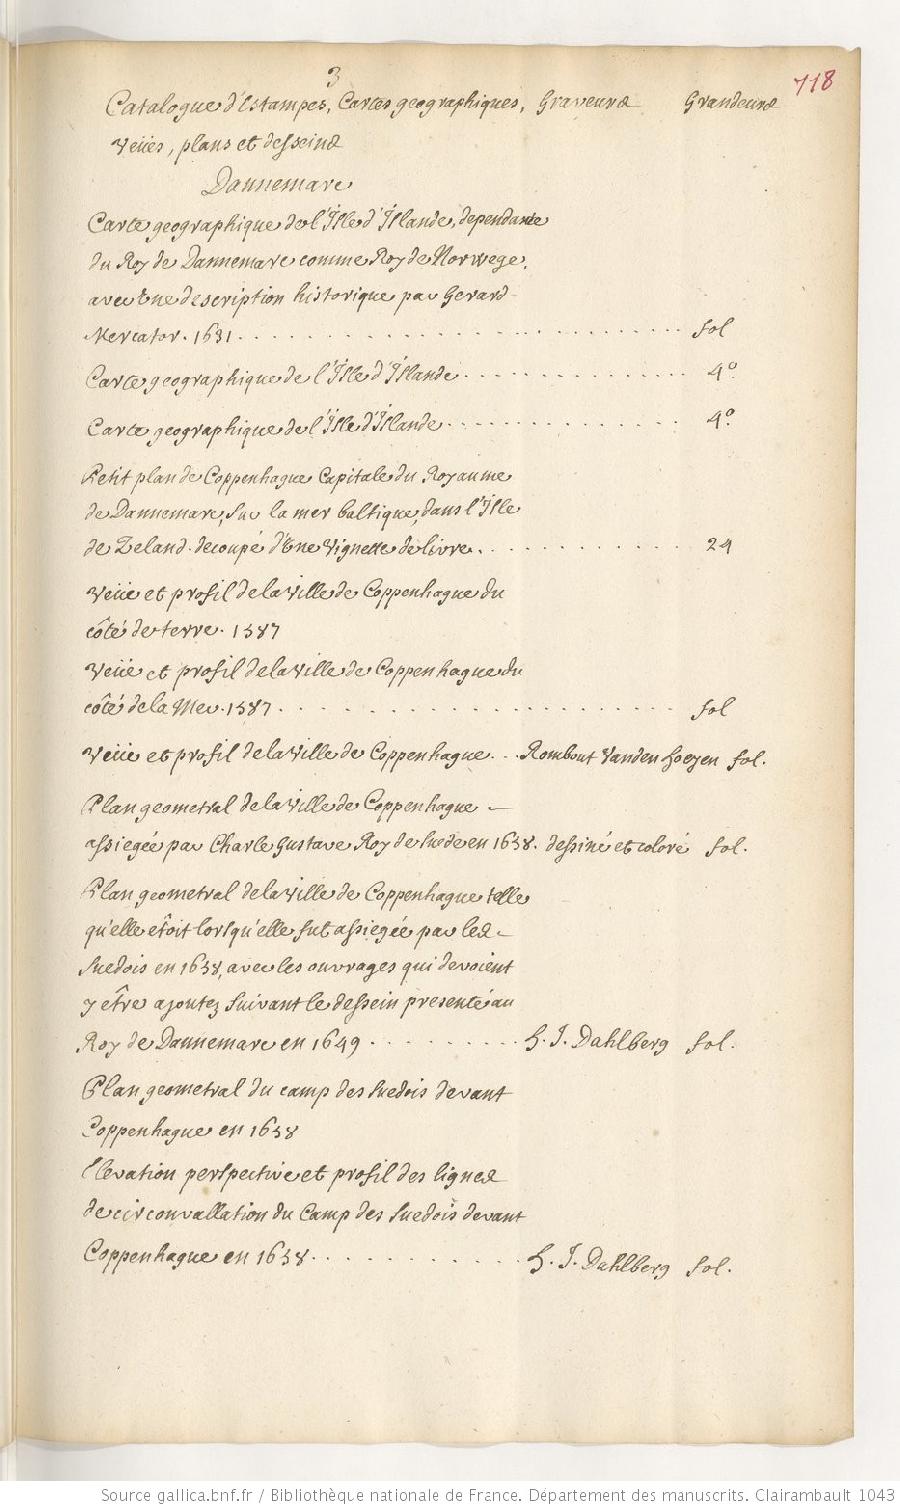 3
718
Catalogue d'Estampes, Cartes geographiques, Graveurs Grandeurs
Veües, plans et desseins
Dannemarc
Carte geographique de l'Isle d'Islande, dependante
du Roy de Dannemarc comme Roy de Norwege,
avec une description historique par Gerard
Mercator. 1631 . . . . . . . . . . fol
Carte geographique de l'Isle d'Islande . . . . . . . . . . 4º
Carte geographique de l'Isle d'Islande . . . . . . . . . . 4º
Petit plan de Coppenhague Capitale du Royaume
de Dannemarc, sur la mer baltique, dans l'Isle
de Zeland. decoupé d'une vignette de livre . . . . . . . . . . 24
Veüe et profil de la Ville de Coppenhague du
côté de terre. 1587
Veüe et profil de la Ville de Coppenhague du
côté de la Mer. 1587 . . . . . . . . . . fol
Veüe et profil de la Ville de Coppenhague . . . Rombout Vanden hoeyen fol.
Plan geometral de la Ville de Coppenhague
assiegée par Charle Gustave Roy de Suede en 1658. dessiné et coloré fol.
Plan geometral de la Ville de Coppenhague telle
qu'elle étoit lorsqu'elle fut assiegée par les
Suedois en 1658, avec les ouvrages qui devoient
y être ajoutez suivant le dessein presenté au
Roy de Dannemarc en 1649 . . . . . . . . . . E. J. Dahlberg fol.
Plan geometral du camp des Suedois devant
Coppenhague en 1658
Elevation perspective et profil des lignes
de circonvallation du Camp des Suedois devant
Coppenhague en 1658 . . . . . . . . . . E. J. Dahlberg fol.
Source gallica.bnf.fr / Bibliothèque nationale de France. Département des manuscrits. Clairambault 1043